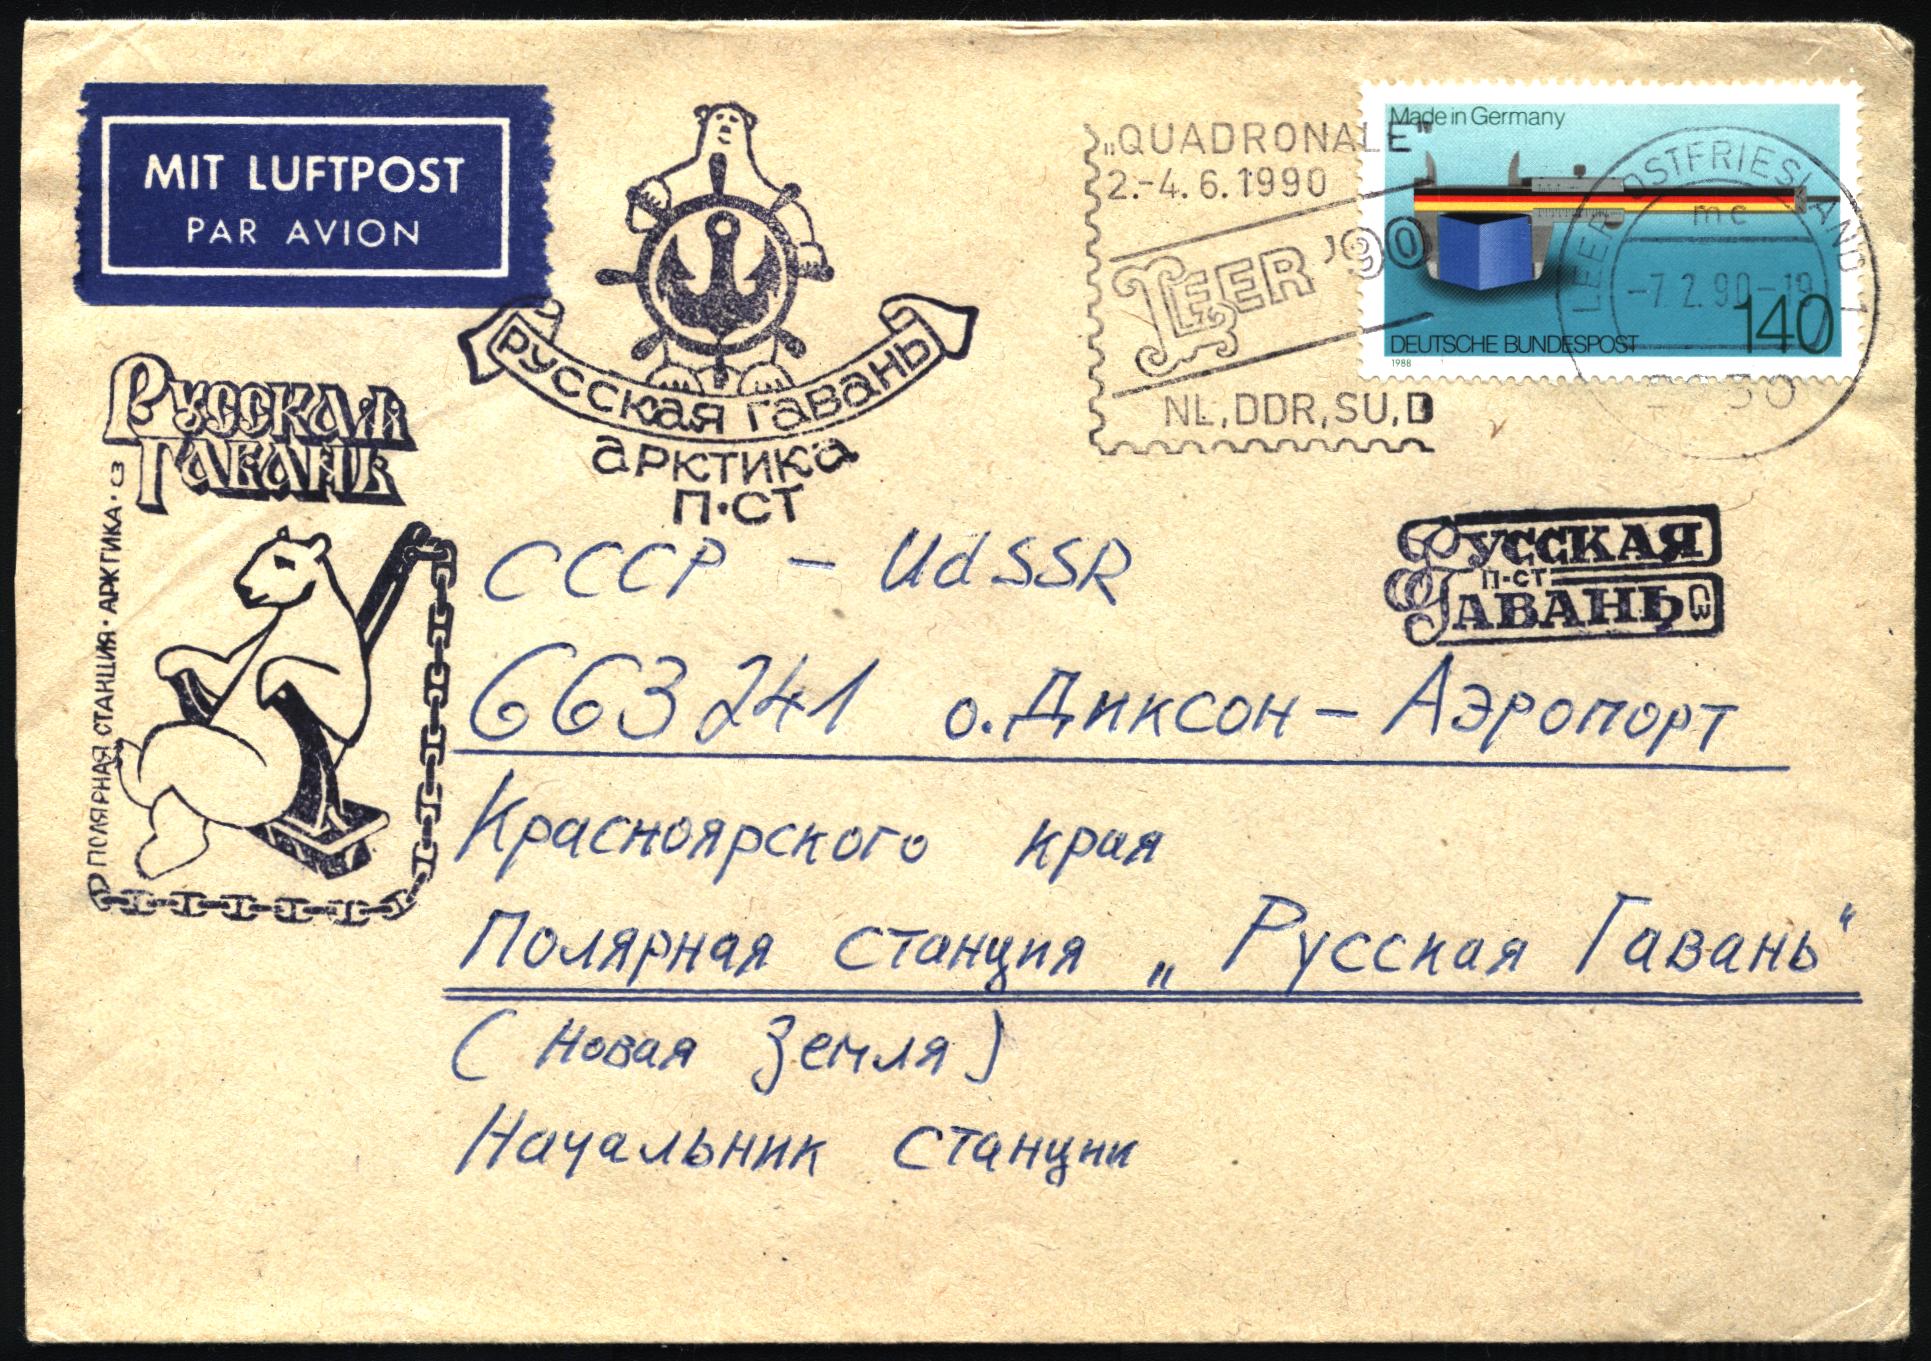 MIT LUFTPOST
PAR AVION
РУССКАЯ ГАВАНЬ
АРКТИКА
П·СТ
„QUADRONALE"
2.-4.6.1990
LEER '90
NL, DDR, SU, D
Made in Germany
DEUTSCHE BUNDESPOST
140
1988
LEER OSTFRIESLAND 1
mc
-7.2.90-19
РУССКАЯ
ГАВАНЬ
ПОЛЯРНАЯ СТАНЦИЯ · АРКТИКА ·
РУССКАЯ
П-СТ
ГАВАНЬ
СССР - UdSSR
663241 о. Диксон - Аэропорт
Красноярского края
Полярная станция „Русская Гавань"
(Новая Земля)
Начальник станции